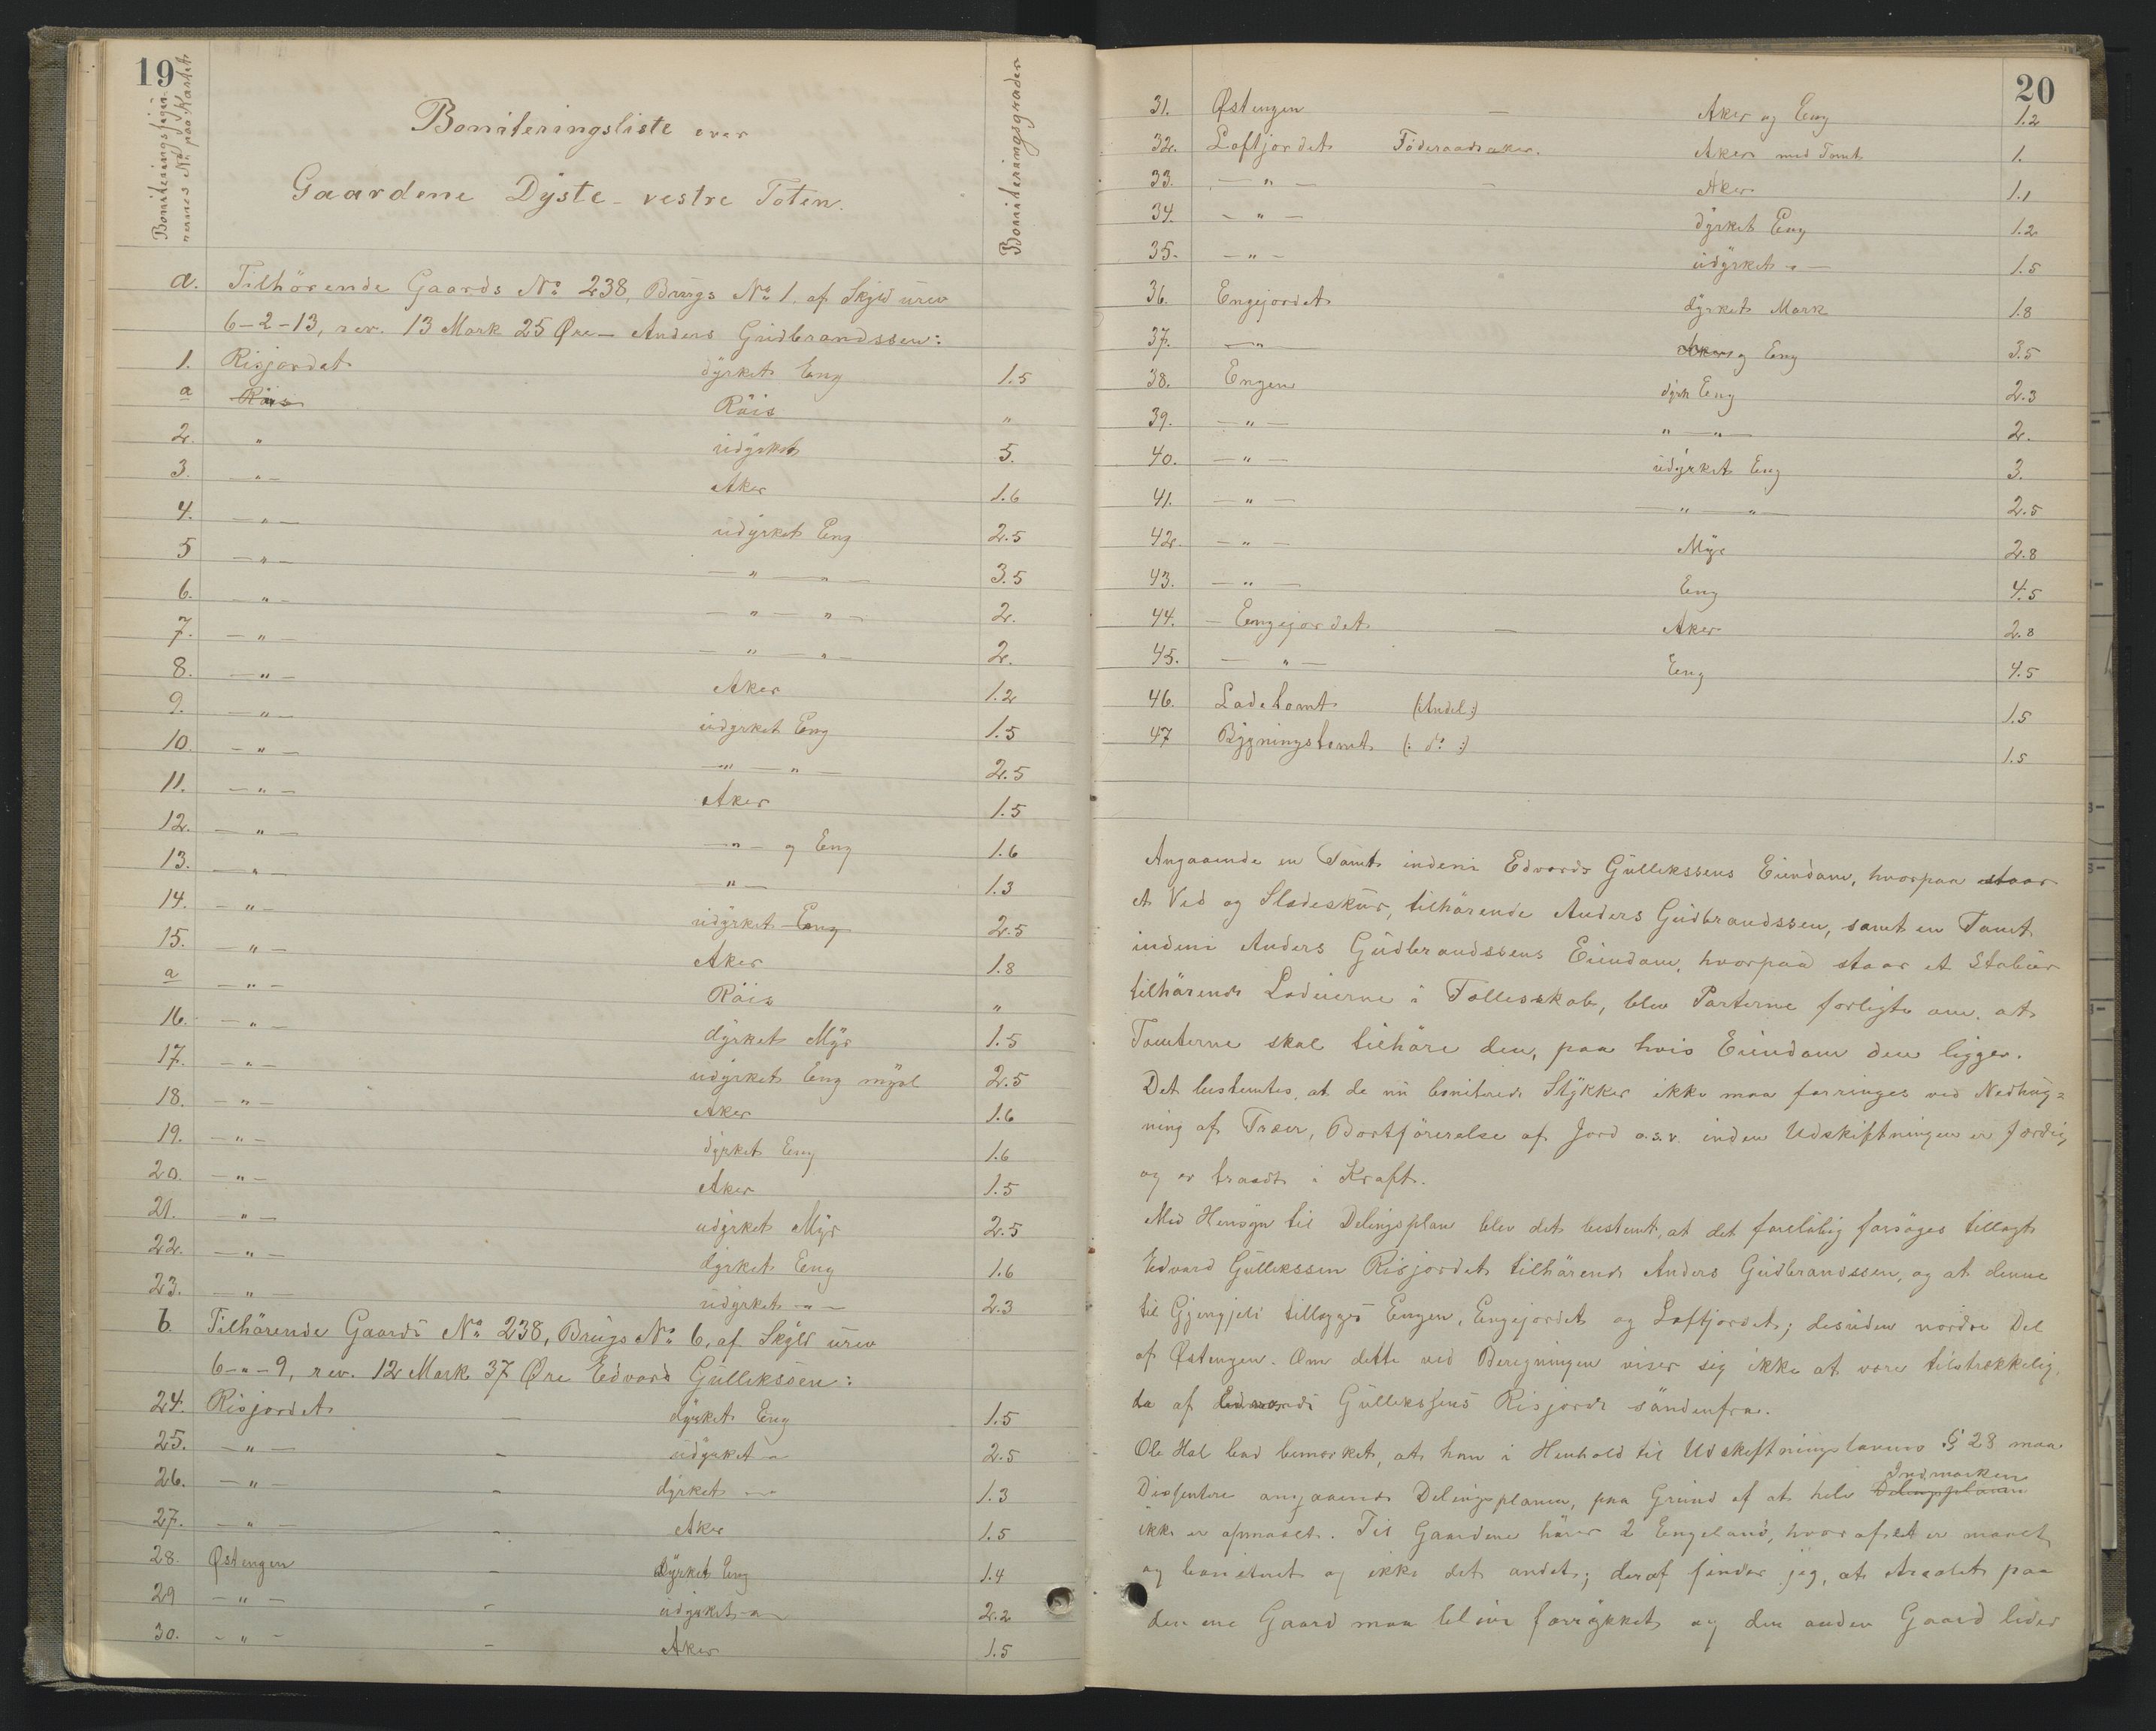 19
Boniteringsfigurernes No. paa Kartet
Boniteringsliste over
Gaardene Dyste - vestre Toten.
Boniteringsgrader
a. Tilhörende Gaards No. 238, Brugs No. 1. af Skyld urev
6-2-13, rev. 13 Mark 25 Øre - Anders Gudbrandssen:
1. Risjordet dyrket Eng 1.5
a Röis Röis "
2. " udyrket 5.
3. -"- Aker 1.6
4. -"- udyrket Eng 2.5
5 -"- -"- -"- 3.5
6. -"- -"- -"- 2.
7. -"- -"- -"- 2.
8. -"- Aker 1.2
9. -"- udyrket Eng 1.5
10. -"- -"- -"- 2.5
11. -"- Aker 1.5
12. -"- -"- og Eng 1.6
13. -"- -"- 1.3
14. -"- udyrket Eng 2.5
15. -"- Aker 1.8
a -"- Röis "
16. -"- dyrket Myr 1.5
17. -"- udyrket Eng myrl 2.5
18. -"- Aker 1.6
19. -"- dyrket Eng 1.6
20. -"- Aker 1.5
21. -"- udyrket Myr 2.5
22. -"- dyrket Eng 1.6
23. -"- udyrket -"- 2.3
b. Tilhörende Gaards No. 238, Brugs No. 6, af Skyld urev
6-"-9, rev. 12 Mark 37 Øre Edvard Gullikssen:
24. Risjordet - dyrket Eng 1.5
25. -"- - udyrket -"- 2.5
26. -"- - dyrket -"- 1.3
27. -"- - Aker 1.5
28. Østengen - Dyrket Eng 1.4
29 -"- - udyrket -"- 2.2
30. -"- - Aker 1.5
20
31. Østengen - Aker og Eng 1.2
32. Loftjordet Föderaadsaker. Aker med Tomt 1.
33. -"- - Aker 1.1
34. -"- dyrket Eng 1.2
35. -"- udyrket -"- 1.5
36. Engejordet dyrket Mark 1.8
37. -"- Aker og Eng 3.5
38. Engen dyrk Eng 2.3
39. -"- " -"- 2.
40. -"- udyrket Eng 3.
41. -"- -"- -"- 2.5
42. -"- Myr 2.8
43. -"- Eng 4.5
44. - Engejordet - Aker 2.8
45. -"- Eng 4.5
46. Ladetomt (:Andel:) 1.5
47 Bygningstomt (: do :) 1.5
Angaaende en Tomt indeni Edvards Gullikssens Eiendom, hvorpaa staar
et Ved og Sladeskur, tilhörende Anders Gudbrandssen, samt en Tomt
indeni Anders Gudbrandssens Eiendom, hvorpaa staar et Stabur
tilhörende Lodeierne i Fællesskab, blev Parterne forligte om, at
Tomterne skal tilhöre den, paa hvis Eiendom den ligger.
Det bestemtes, at de nu boniterede Stykker ikke maa forringes ved Nedhug=
ning af Træer, Bortförerelse af Jord o.s.v. inden Udskiftningen er færdig
og er traadt i Kraft.
Med Hensyn til Delingsplan blev det bestemt, at det foreløbig forsöges tillagt
Edvard Gullikssen Risjordet tilhörende Anders Gudbrandssen, og at denne
til Gjengjeld tillægges Engen, Engejordet og Loftjordet; desuden nordre Del
af Østengen. Om dette ved Beregningen viser sig ikke at være tilstrækkelig,
da af Edvards Gullikssens Risjorde söndenfra.
Ole Hol bad bemærket, at han i Henhold til Udskiftningslovens § 28 maa
Dissentere angaaende Delingsplanen, paa Grund af at hele Delingsplanen Indmarken
ikke er opmaalt. Til Gaardene hörer 2 Engeland, hvoraf et er maalt
og boniteret og ikke det andet; deraf finder jeg, at Arealet paa
den ene Gaard maa blive forrykket og den anden Gaard lider